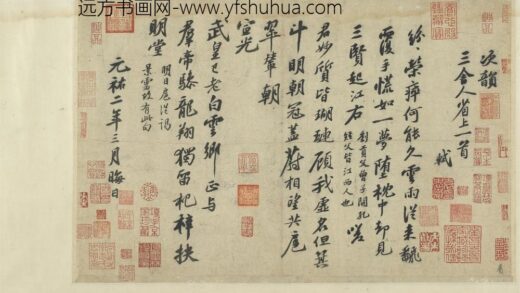 远方书画网-www.yfshuhua.com
次韻
三舍人省上一首
軾
紛榮瘁何能久雲雨從来翻
覆手慌如一夢墮枕中却見
三賢起江右
劉貢父曾子開孔
經父皆江西人也
嗟
君妙質皆瑚璉顧我虛名但箕
斗明朝冠蓋蔚相望共扈
翠輦朝
宣光
武皇已老白雲鄉正與
羣帝驂龍翔獨留杞梓扶
明堂
明日扈從謁
景靈故有此句
元祐二年三月晦日